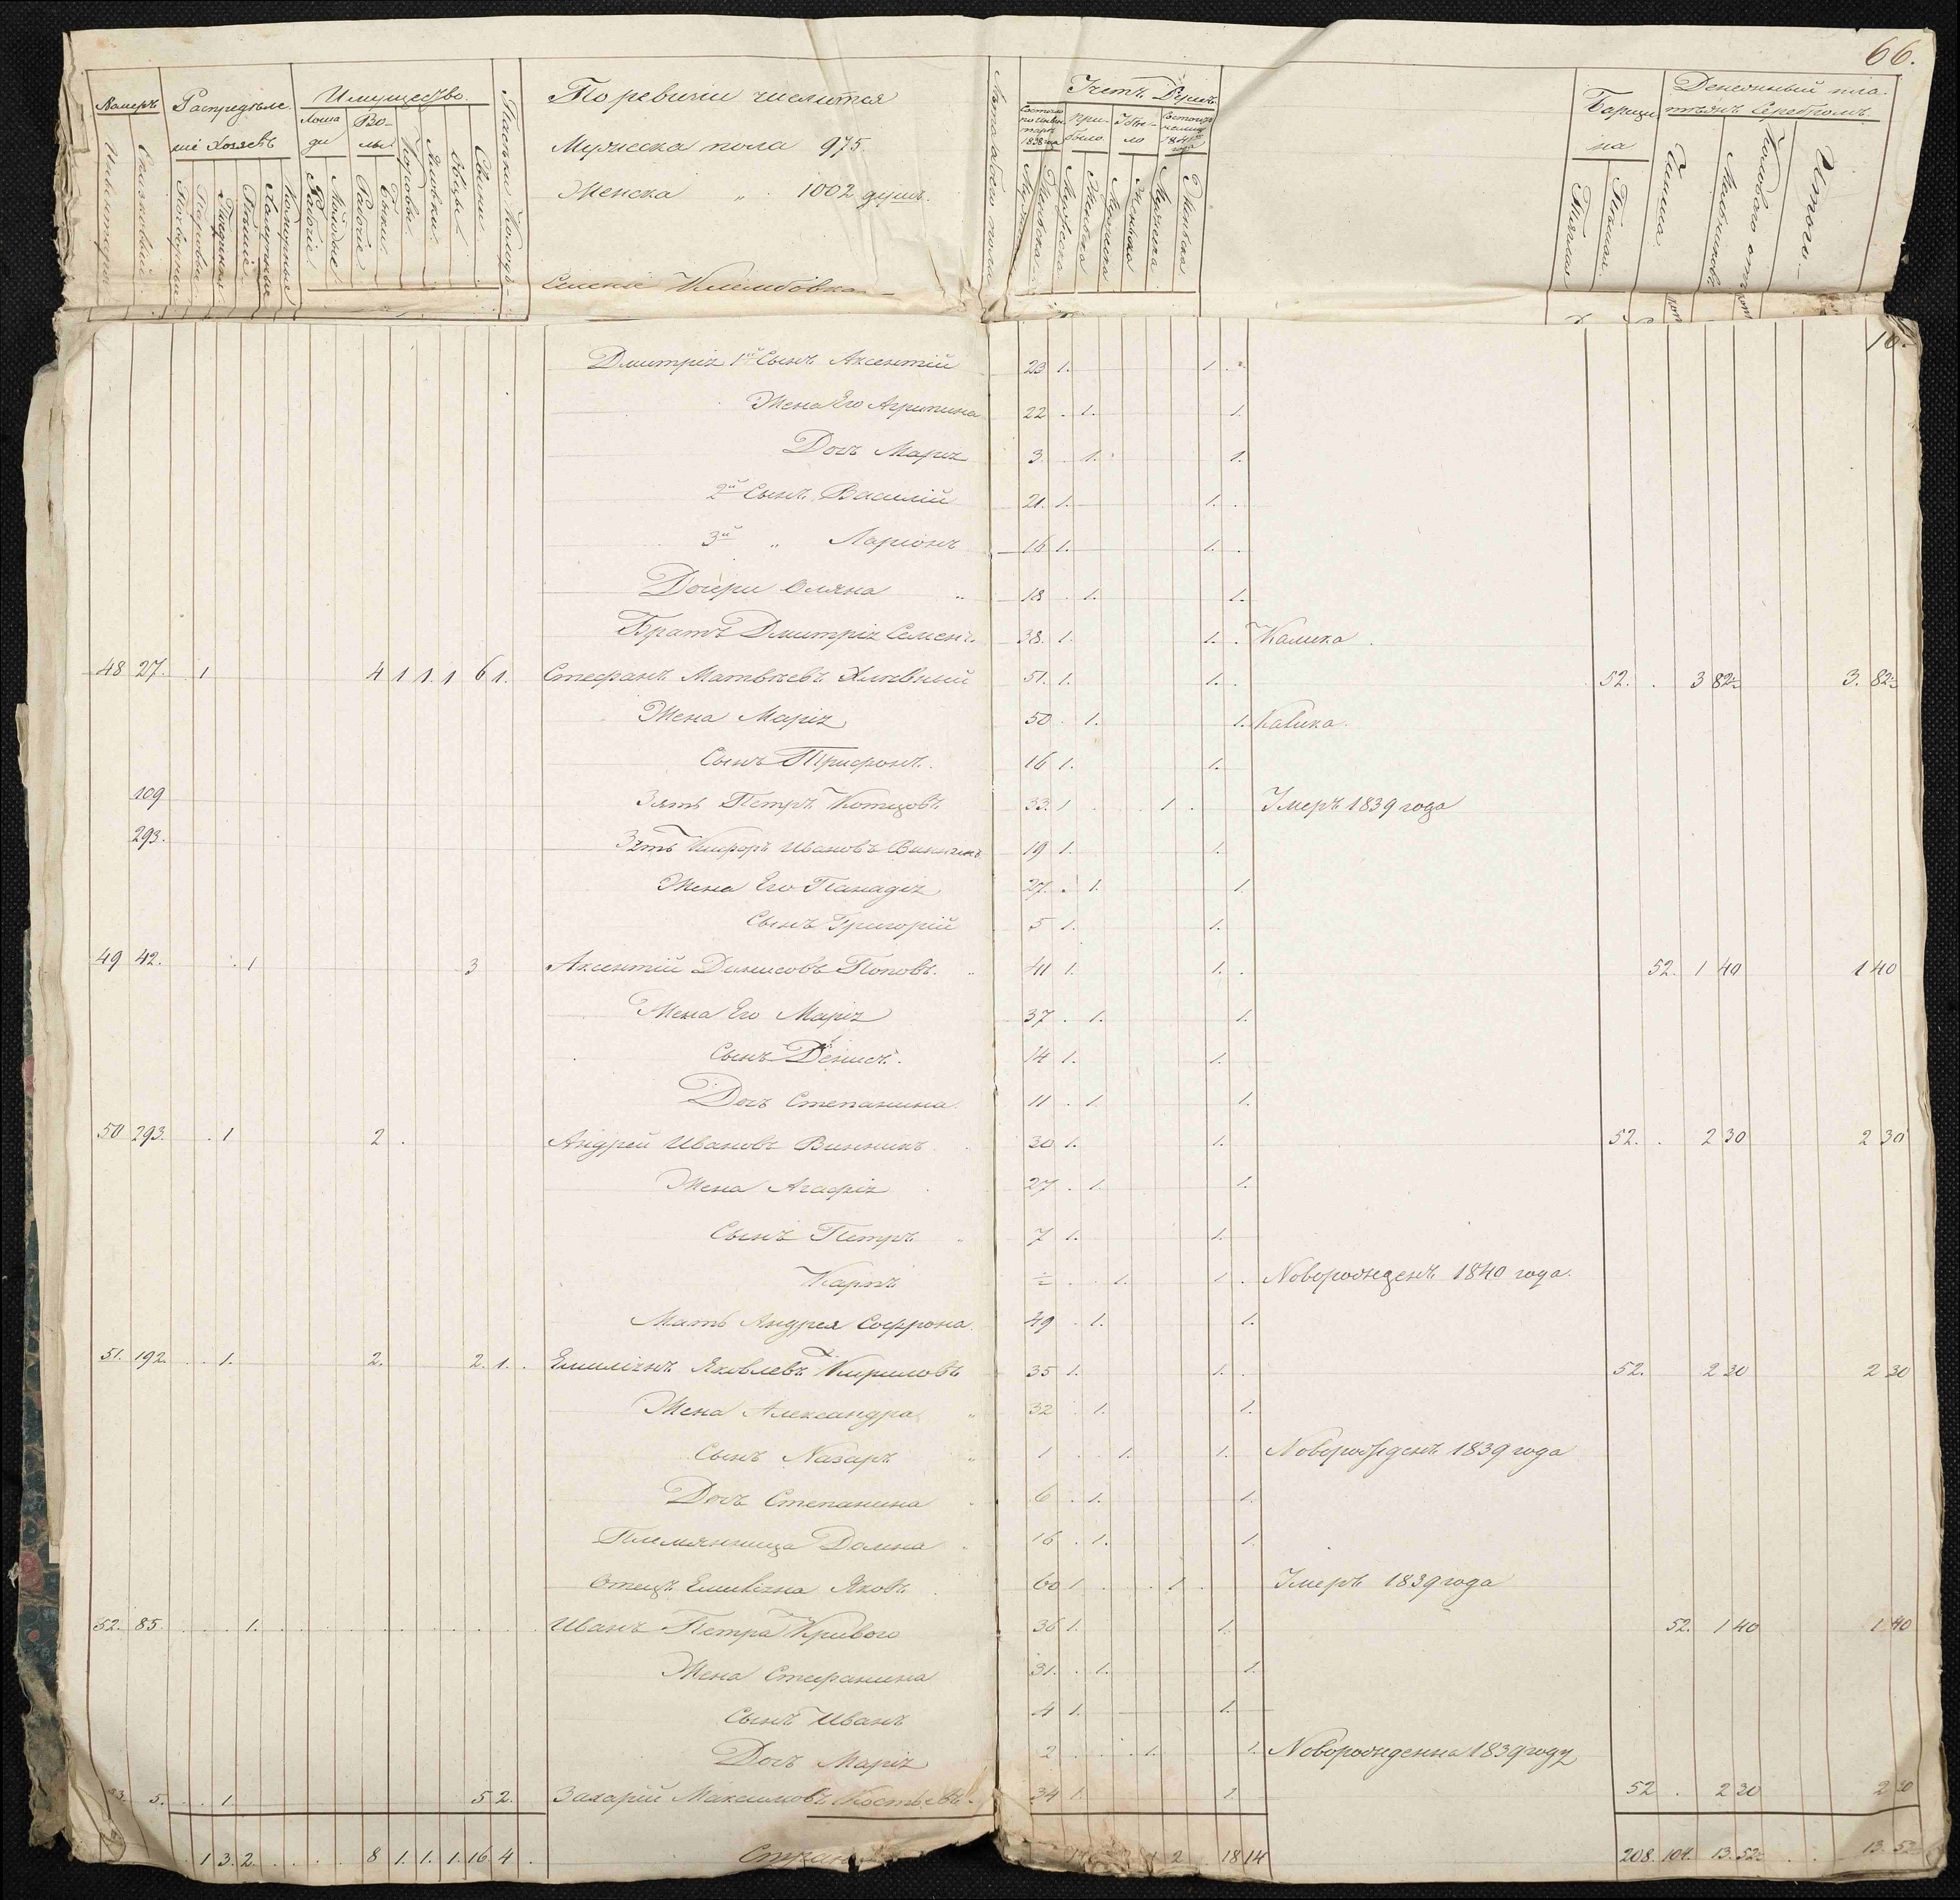 66.
Номеръ
Инвентарн
Списковый
Распредѣле
ніе Хозяевъ
Паровые
Поединки
Пѣшіе
Халупные
Коморные
Имущество.
Лоша
ди
Во-
лы
Рабочіе
Молодые
Рабочіе
Бычки
Коровы
Яловки
Овцы
Свиньи
Пасѣки Колодъ
По ревизіи числится
Мужеска пола 975.
Женска " 1002 душъ.
Селеніе Клембовка
Лѣта обоего пола
Счетъ Душъ
Состояло по инвентарю 1838 года
При-
было
Убы-
ло
Состоитъ на лицо 1841 года
Мужеска
Женска
Мужеска
Женска
Мужеска
Женска
Мужеска
Женска
Барщи
на
Тяглая
Пѣшая
Денежный пла-
тежъ Серебромъ
Чинша
Итого
10.
Дмитрія 1й Сынъ Аксентій 23 1. 1
Жена Его Агрипина 22 1. 1.
Дочь Марія 3 1. 1.
2й Сынъ Василій 21. 1. 1.
3й " Ларіонъ 16 1. 1.
Дочери Оляна 18 1. 1.
Братъ Дмитрія Семенъ 38. 1. 1. Калика
48 27. 1 4 1 1. 1 6 1. Стефанъ Матвѣевъ Хлѣвный 51. 1. 1. 52. 3 82½ 3. 82½
Жена Марія 50 1. 1. Калика
Сынъ Трифонъ. 16 1. 1.
109 Зять Петръ Котцовъ 33. 1 1 Умеръ 1839 года
293. Зять Никифоръ Ивановъ Винникъ 19 1. 1.
Жена Его Панадія 27. 1. 1.
Сынъ Григорій 5 1. 1.
49 42. 1 3 Аксентій Денисовъ Поповъ. 41 1. 1. 52. 1 40 1 40
Жена Его Марія 37 1. 1.
Сынъ Денисъ. 14 1. 1.
Дочь Степанина 11 1. 1.
50 293. 1 2 Андрей Ивановъ Винникъ 30 1. 1. 52. 2 30 2 30
Жена Агафія 27 1. 1.
Сынъ Петръ 7 1. 1.
Карпъ ½ 1. 1 Новорожденъ 1840 года.
Мать Андрея Софрона 49 1. 1.
51. 192. 1. 2. 2. 1. Емиліянъ Яковлевъ Кириловъ 35 1. 1. 52. 2 30 2 30
Жена Александра 32 1. 1.
Сынъ Назаръ 1 1. 1. Новорожденъ 1839 года
Дочь Степанина 6 1. 1.
Племянница Домна 16 1. 1.
Отецъ Емиліяна Яковъ 60 1 1 Умеръ 1839 года
52. 85. 1. Иванъ Петра Кривого 36 1. 1. 52. 1 40 1 40
Жена Стефанина 31. 1. 1.
Сынъ Иванъ 4 1. 1.
Дочь Марія 2 1. 1. Новорожденна 1839 году
53. 5. 1 5 2. Захарій Максимовъ Костьевъ 34 1. 1. 52 2 30 2 30
1 3. 2. 8 1. 1. 1. 16 4 2 18 14 208. 104. 13. 52½ 13. 52